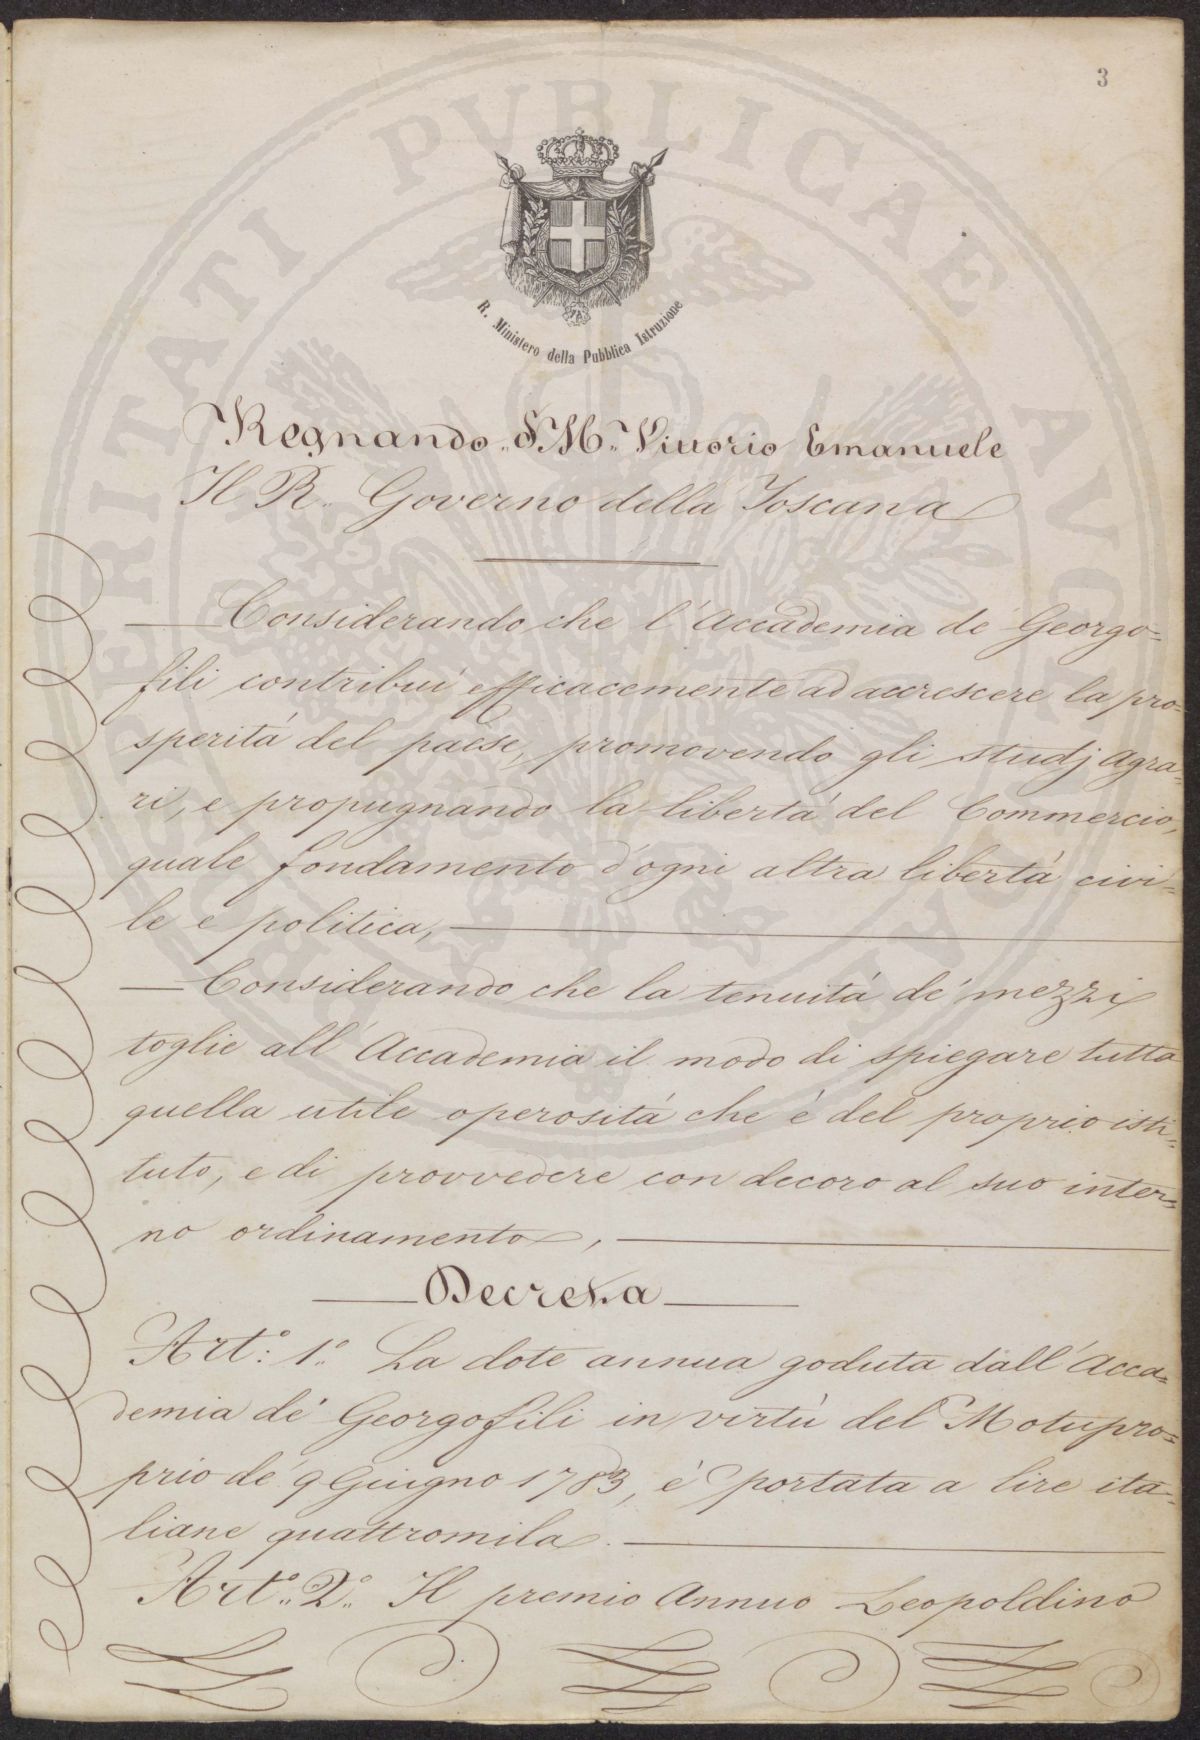 3
R. Ministero della Pubblica Istruzione
PROSPERITATI PVBLICAE AVGENDAE
Regnando S. M. Vittorio Emanuele
Il R. Governo della Toscana
Considerando che l'Accademia de' Georgo=
fili contribuì efficacemente ad accrescere la pro=
sperità del paese, promovendo gli studj agra=
ri, e propugnando la libertà del Commercio,
quale fondamento d'ogni altra libertà civi=
le e politica,
Considerando che la tenuità de' mezzi
toglie all'Accademia il modo di spiegare tutta
quella utile operosità che è del proprio isti=
tuto, e di provvedere con decoro al suo inter=
no ordinamento,
Decreta
Art.° 1.° La dote annua goduta dall'Acca=
demia de' Georgofili in virtù del Motupro=
prio de' 9 Giugno 1783, è portata a lire ita=
liane quattromila.
Art.° 2.° Il premio annuo Leopoldino